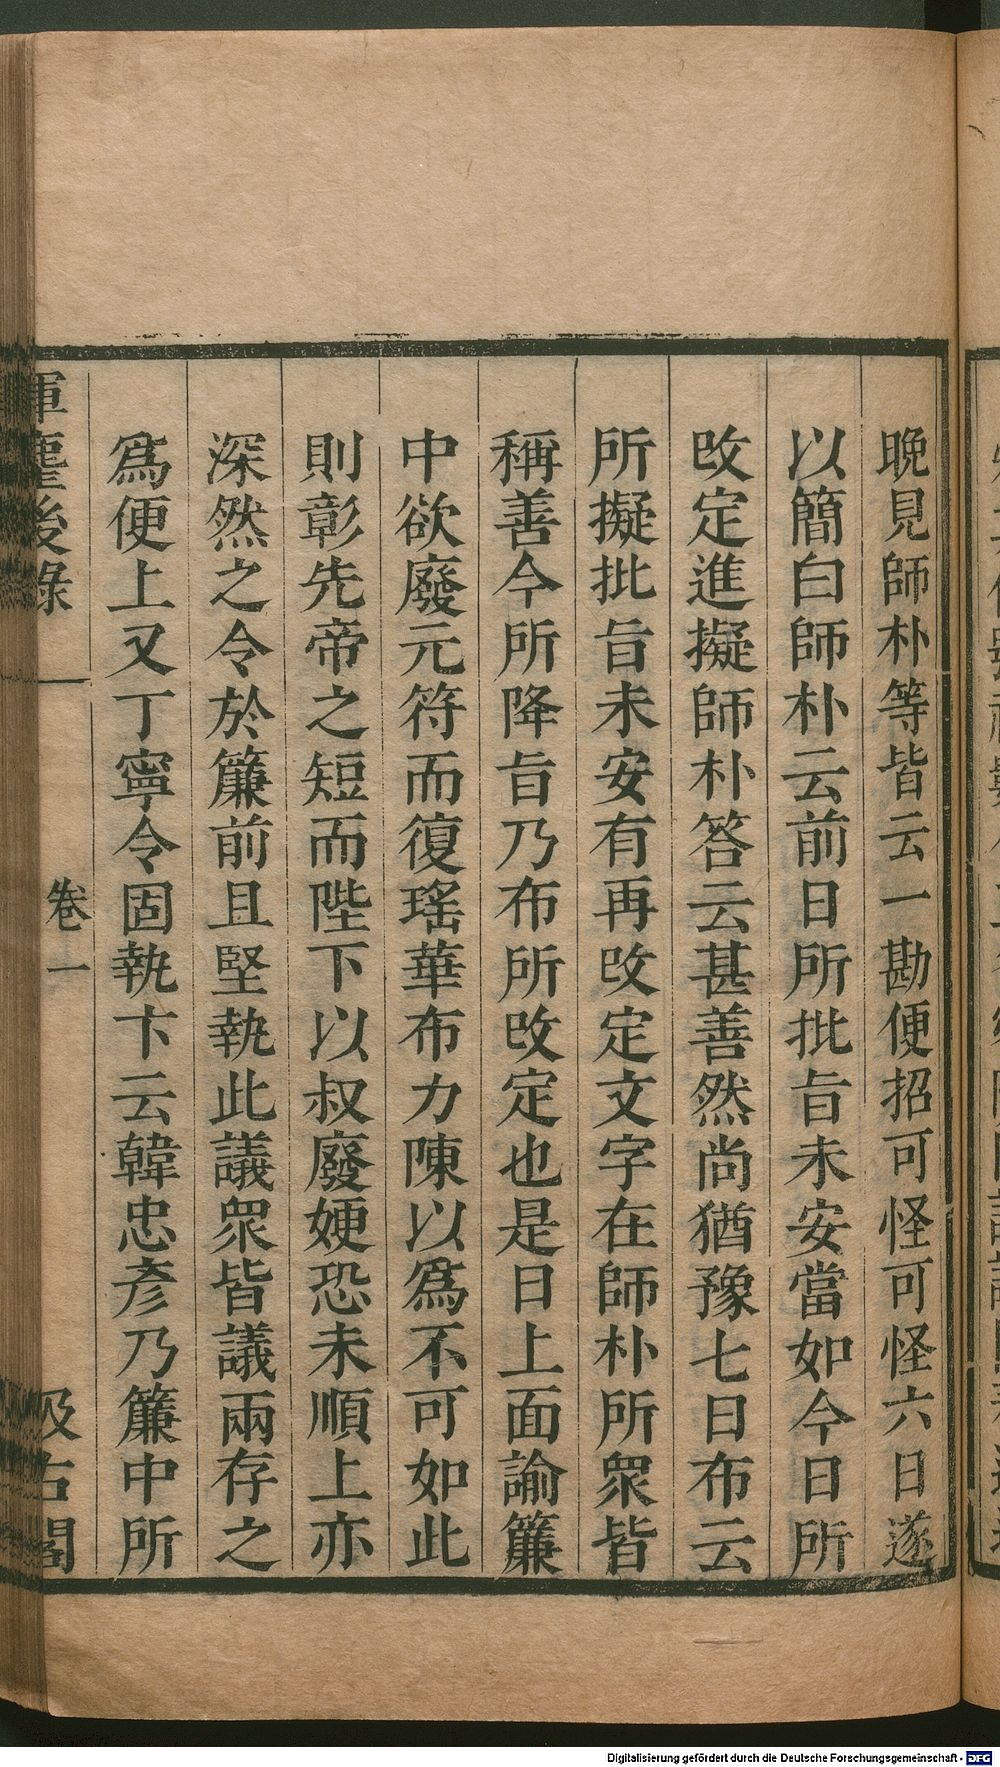 晚見師朴等皆云一勘便招可怪可怪六日遂
以簡白師朴云前日所批旨未安當如今日所
改定進擬師朴答云甚善然尚猶豫七日布云
所擬批旨未安有再改定文字在師朴所衆皆
稱善今所降旨乃布所改定也是日上面諭簾
中欲廢元符而復瑤華布力陳以爲不可如此
則彰先帝之短而陛下以叔廢嫂恐未順上亦
深然之令於簾前且堅執此議衆皆議兩存之
爲便上又丁寧令固執卞云韓忠彥乃簾中所
揮麈後錄
卷一
汲古閣
Digitalisierung gefördert durch die Deutsche Forschungsgemeinschaft - DFG